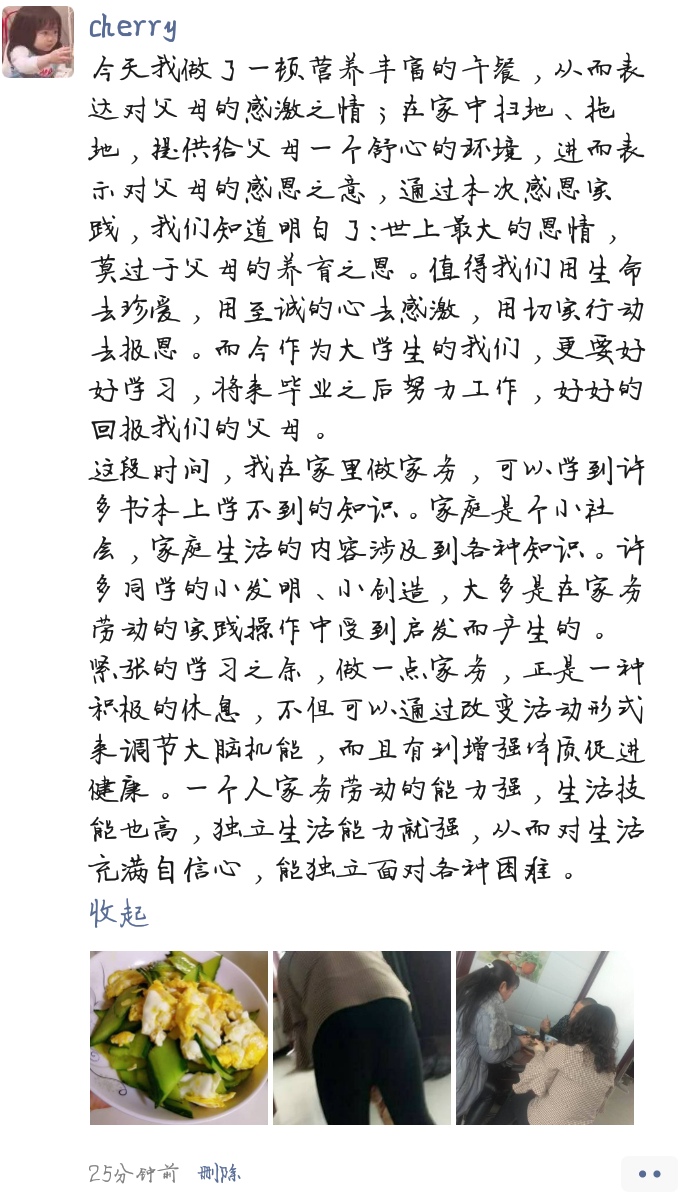 cherry
今天我做了一顿营养丰富的午餐，从而表
达对父母的感激之情；在家中扫地、拖
地，提供给父母一个舒心的环境，进而表
示对父母的感恩之意，通过本次感恩实
践，我们知道明白了:世上最大的恩情，
莫过于父母的养育之恩。值得我们用生命
去珍爱，用至诚的心去感激，用切实行动
去报恩。而今作为大学生的我们，更要好
好学习，将来毕业之后努力工作，好好的
回报我们的父母。
这段时间，我在家里做家务，可以学到许
多书本上学不到的知识。家庭是个小社
会，家庭生活的内容涉及到各种知识。许
多同学的小发明、小创造，大多是在家务
劳动的实践操作中受到启发而产生的。
紧张的学习之余，做一点家务，正是一种
积极的休息，不但可以通过改变活动形式
来调节大脑机能，而且有利增强体质促进
健康。一个人家务劳动的能力强，生活技
能也高，独立生活能力就强，从而对生活
充满自信心，能独立面对各种困难。
收起
25分钟前 删除